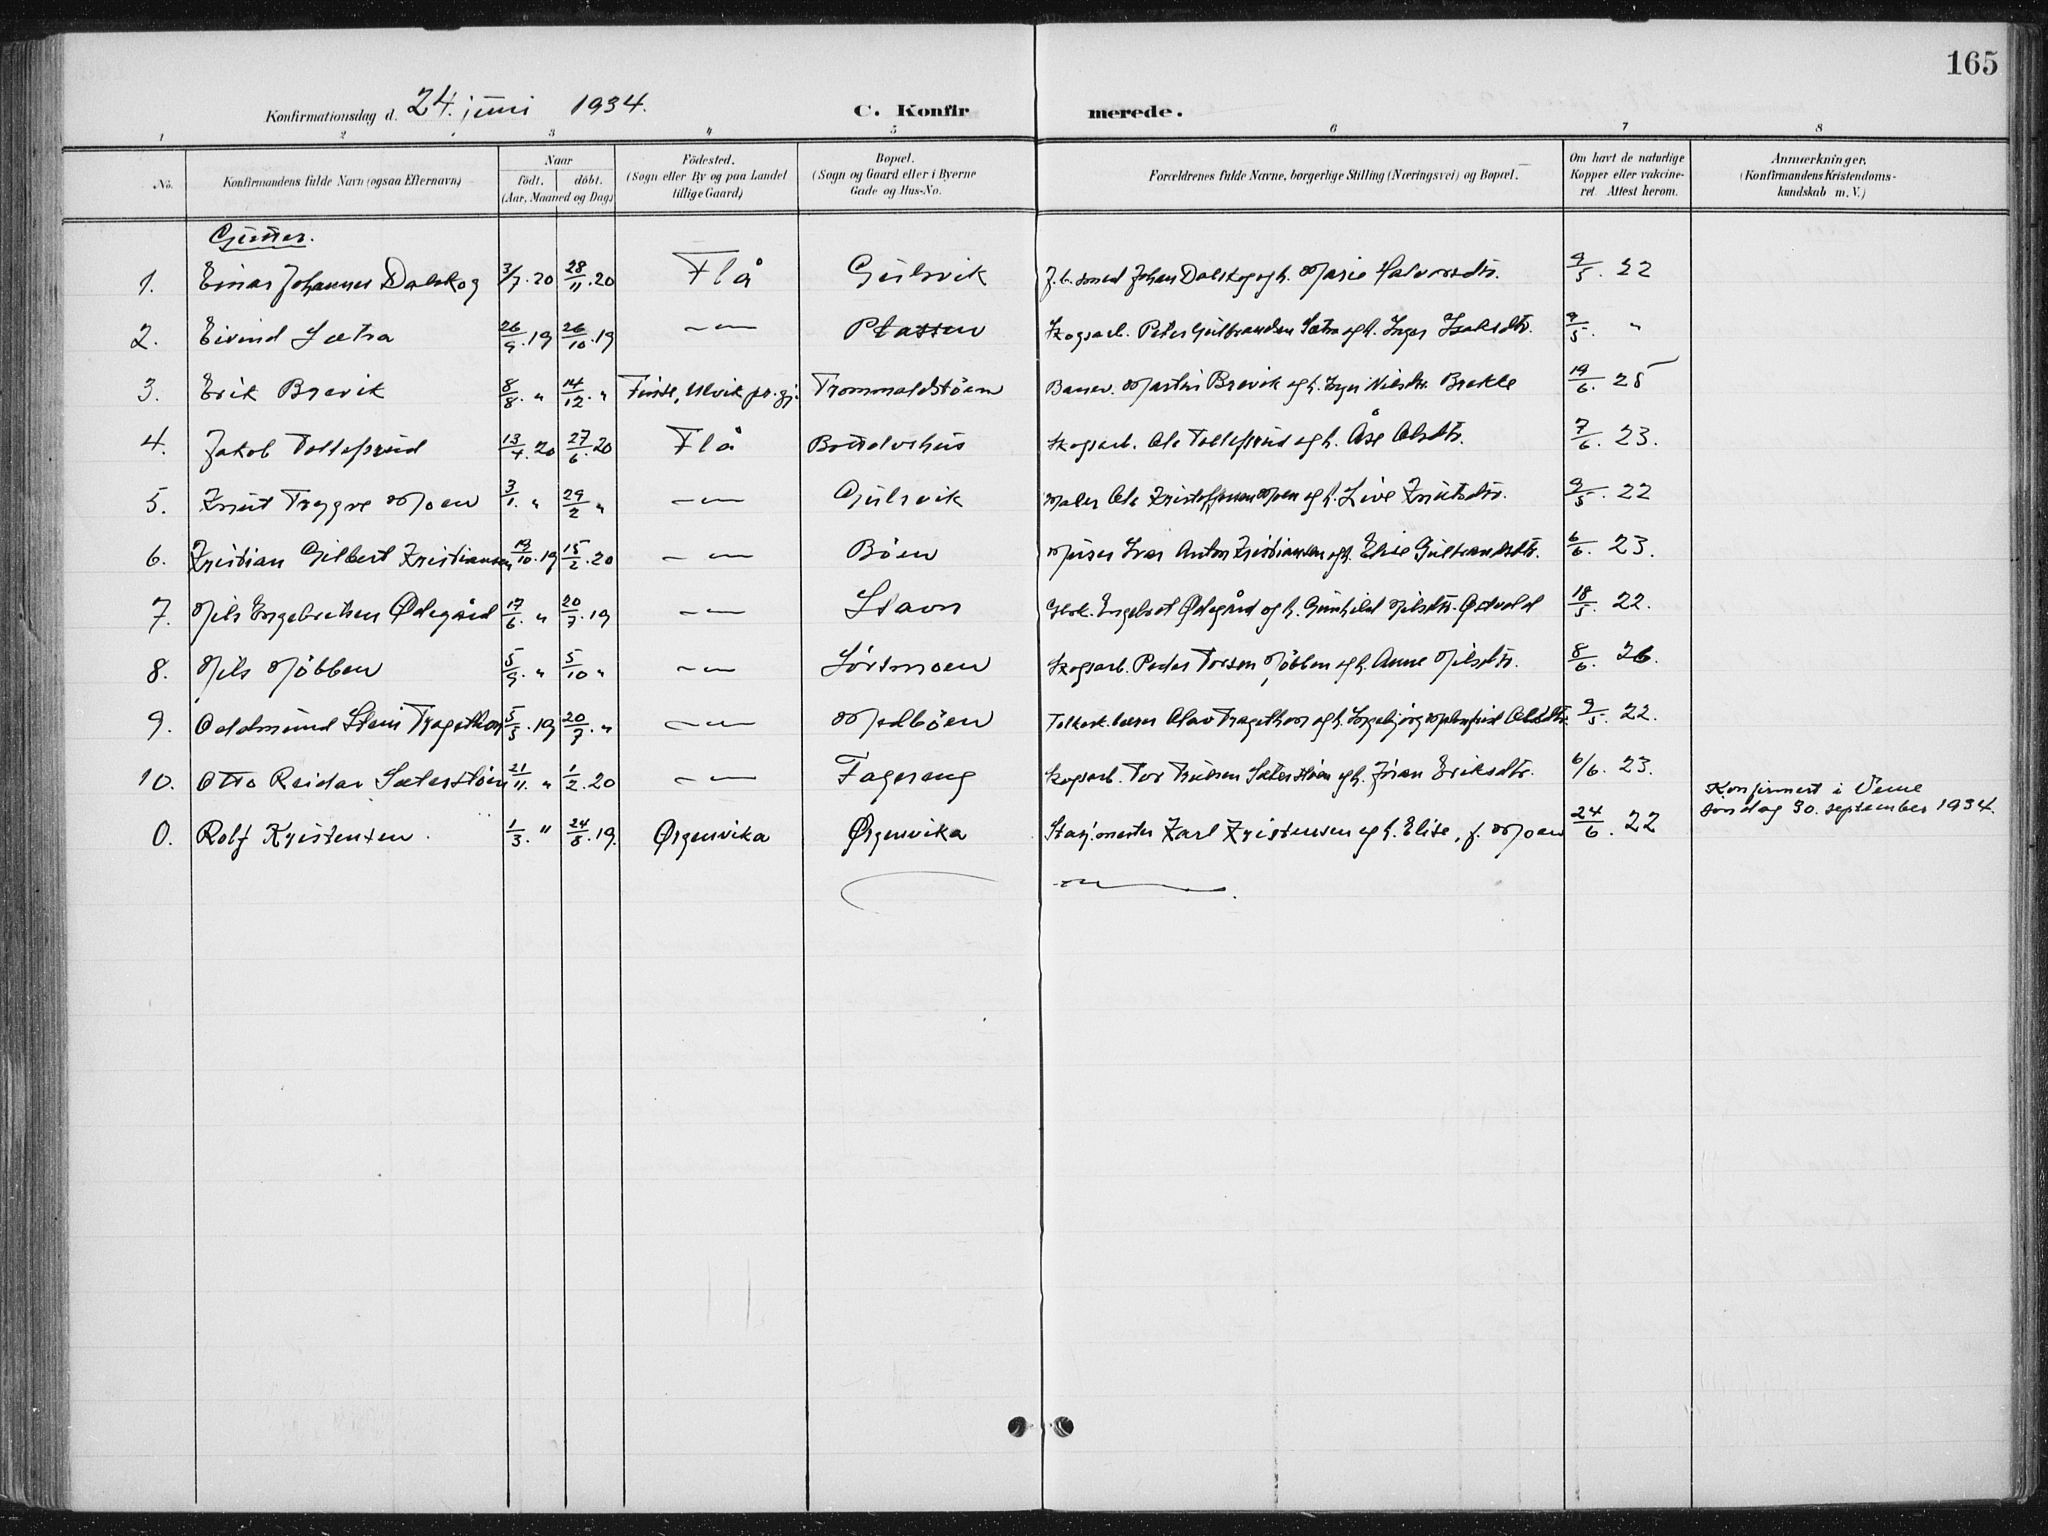 165
Konfirmationsdag d. 24. juni 1934. C. Konfirmerede.
1 2 3 4 5 6 7 8
No. Konfirmandens fulde Navn (ogsaa Efternavn) Naar født. døbt. (Aar, Maaned og Dag) Födested. (Sogn eller By og paa Landet tillige Gaard) Bopæl. (Sogn og Gaard eller i Byerne Gade og Hus-No. Forældrenes fulde Navne, borgerlige Stilling (Næringsvei) og Bopæl. Om havt de naturlige Kopper eller vakcineret. Attest herom. Anmærkninger. (Konfirmandens Kristendomskundskab m. V.)
Gutter.
1. Einar Johannes Dalskog 3/7.20 28/11.20 Flå Gulsvik J.b. smed Johan Dalskog og h. Marie Halvorsdtr. 9/5. 22
2. Eivind Sætra 26/9.19 26/10.19 -"- Plassen Skogsarb. Peter Gulbrandsen Sætra og h. Inger Isaksdtr. 9/5. "
3. Erik Brevik 8/8. " 14/12. " Finse, Ulvik pr.gj. Trommaldstøen Banev. Martin Brevik og h. Inger Nilsdtr. Brekke 19/6. 25
4. Jakob Tollefsrud 13/4.20 27/6.20 Flå Bråtelvshus Skogsarb. Ole Tollefsrud og h. Åse Olsdtr. 7/6. 23.
5. Knut Trygve Moen 3/1. " 29/2 " -"- Gulsvik Maler Ole Kristoffersen Moen og h. Live Knutsdtr. 9/5. 22
6. Kristian Gilbert Kristiansen 19/10.19 15/2.20 -"- Bøen Murer Ivar Anton Kristiansen og h. Elise Gulbrandsdtr. 6/6. 23.
7. Nils Engebretsen Ødegård 17/6. " 20/7.19 -"- Stavn Engebret Ødegård og h. Gunhild Nilsdtr. Østvold 18/5. 22.
8. Nils Møbben 5/9. " 5/10 " -"- Sørsmoen Skogsarb. Peder Torsen Møbben og h. Anne Nilsdtr. 8/6. 26.
9. Oddmund Stein Tragethon 5/5.19 20/7. " -"- Medbøen Folkesk. lærer Olav Tragethon og h. Ingebjørg Olsdtr. 9/5. 22.
10. Otto Reidar Sæterstøen 21/11. " 1/2.20 -"- Fagereng Skogsarb. Tor Truesen Sæterstøen og h. Jøran Eriksdtr. 6/6. 23.
Konfirmert i Veme
søndag 30. september 1934.
0. Rolf Kristensen. 1/3. " 24/8.19. Ørgenvika Ørgenvika Stasj.mester Karl Kristensen og h. Elise, f. Moen 24/6. 22